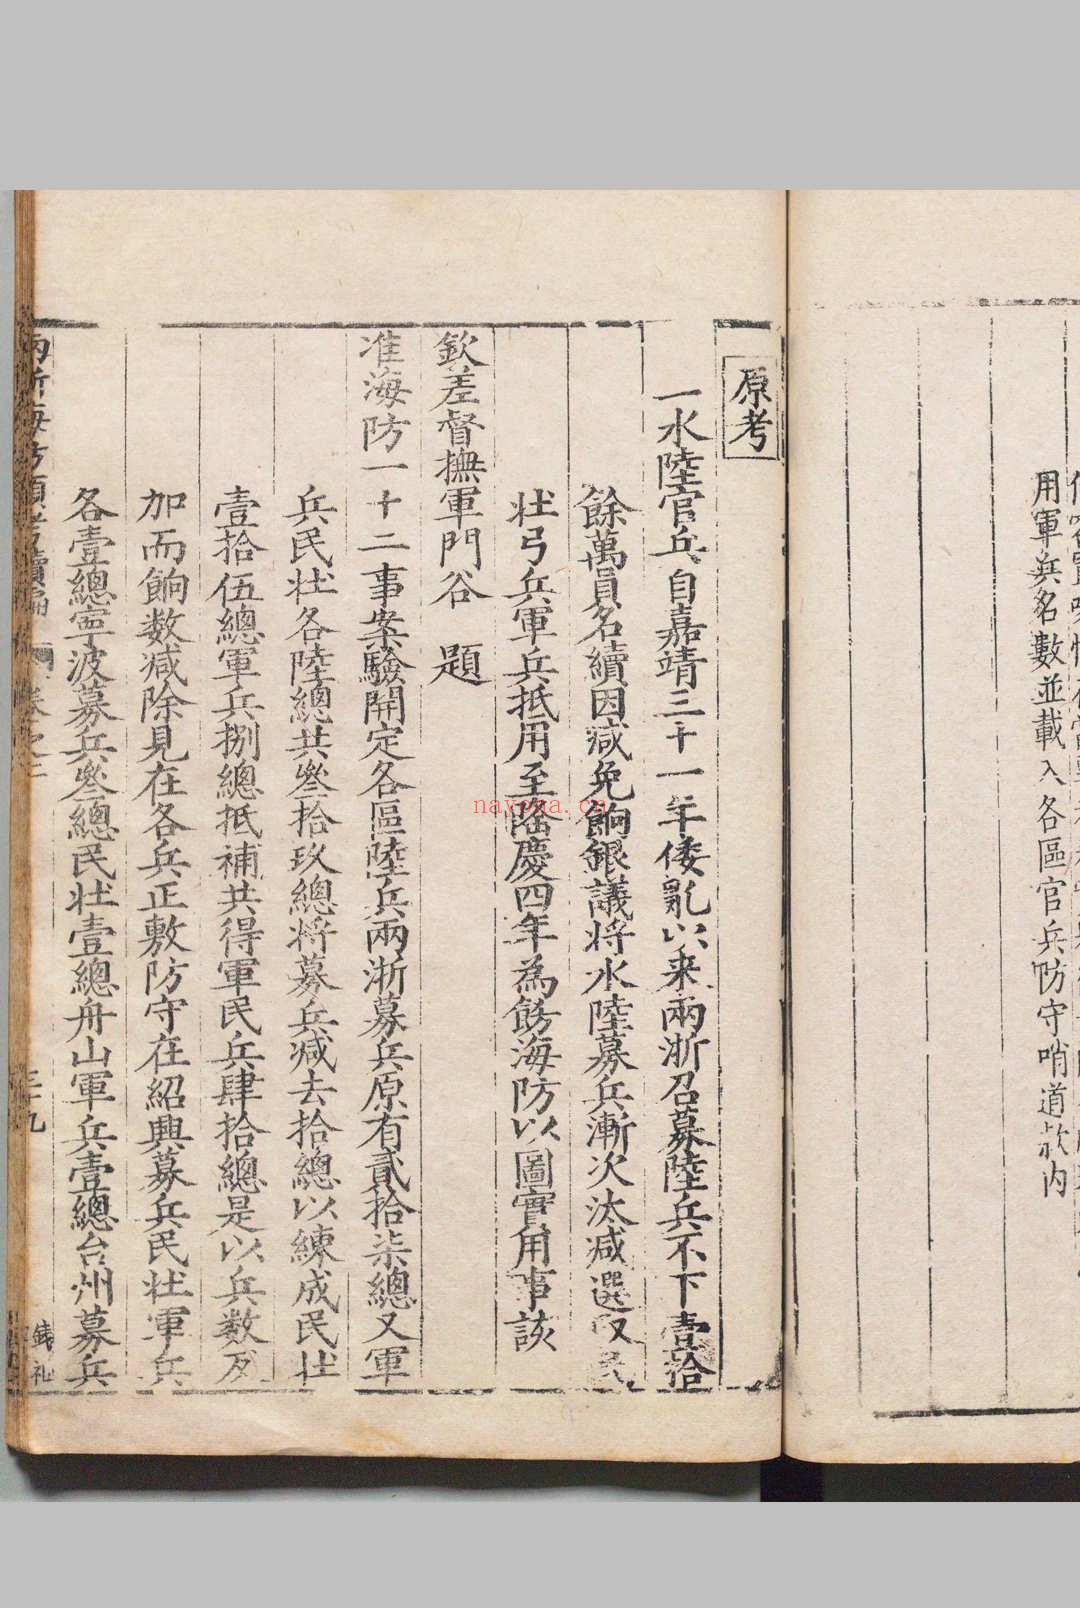 用軍兵名數並載入各區官兵防守哨道款內
原考
一水陸官兵自嘉靖三十一年倭亂以來兩浙召募陸兵不下壹拾
餘萬員名續因減免餉銀議將水陸募兵漸次汰減選取民
壯弓兵軍兵抵用至隆慶四年為飭海防以圖實用事該
欽差督撫軍門谷 題
准海防一十二事案驗開定各區陸兵兩浙募兵原有貳拾柒總又軍
兵民壯各陸總共叄拾玖總將募兵減去拾總以練成民壯
壹拾伍總軍兵捌總抵補共得軍民兵肆拾總是以兵数反
加而餉数減除見在各兵正敷防守在紹興募兵民壯軍兵
各壹總寧波募兵叄總民壯壹總舟山軍兵壹總台州募兵
兩浙海防類考續編 卷之二 三十九
錢礼
nayona.cn